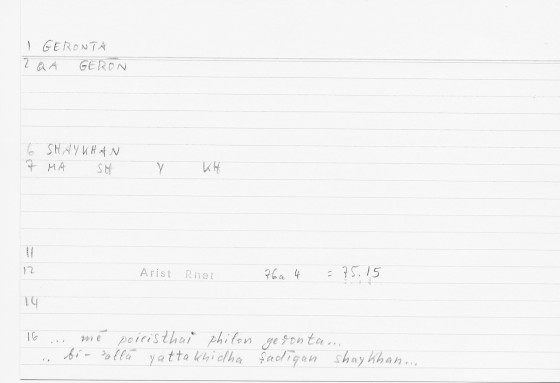 1 GERONTA
2 QA GERŌN
6 SHAYKHAN
7 MA SH Y KH
11
12 Arist Rhet 76a 4 = 75.15
14
16 ... mē poieisthai philon geronta...
.. bi-ʾallā yattakhidha ṣadīqan shaykhan...